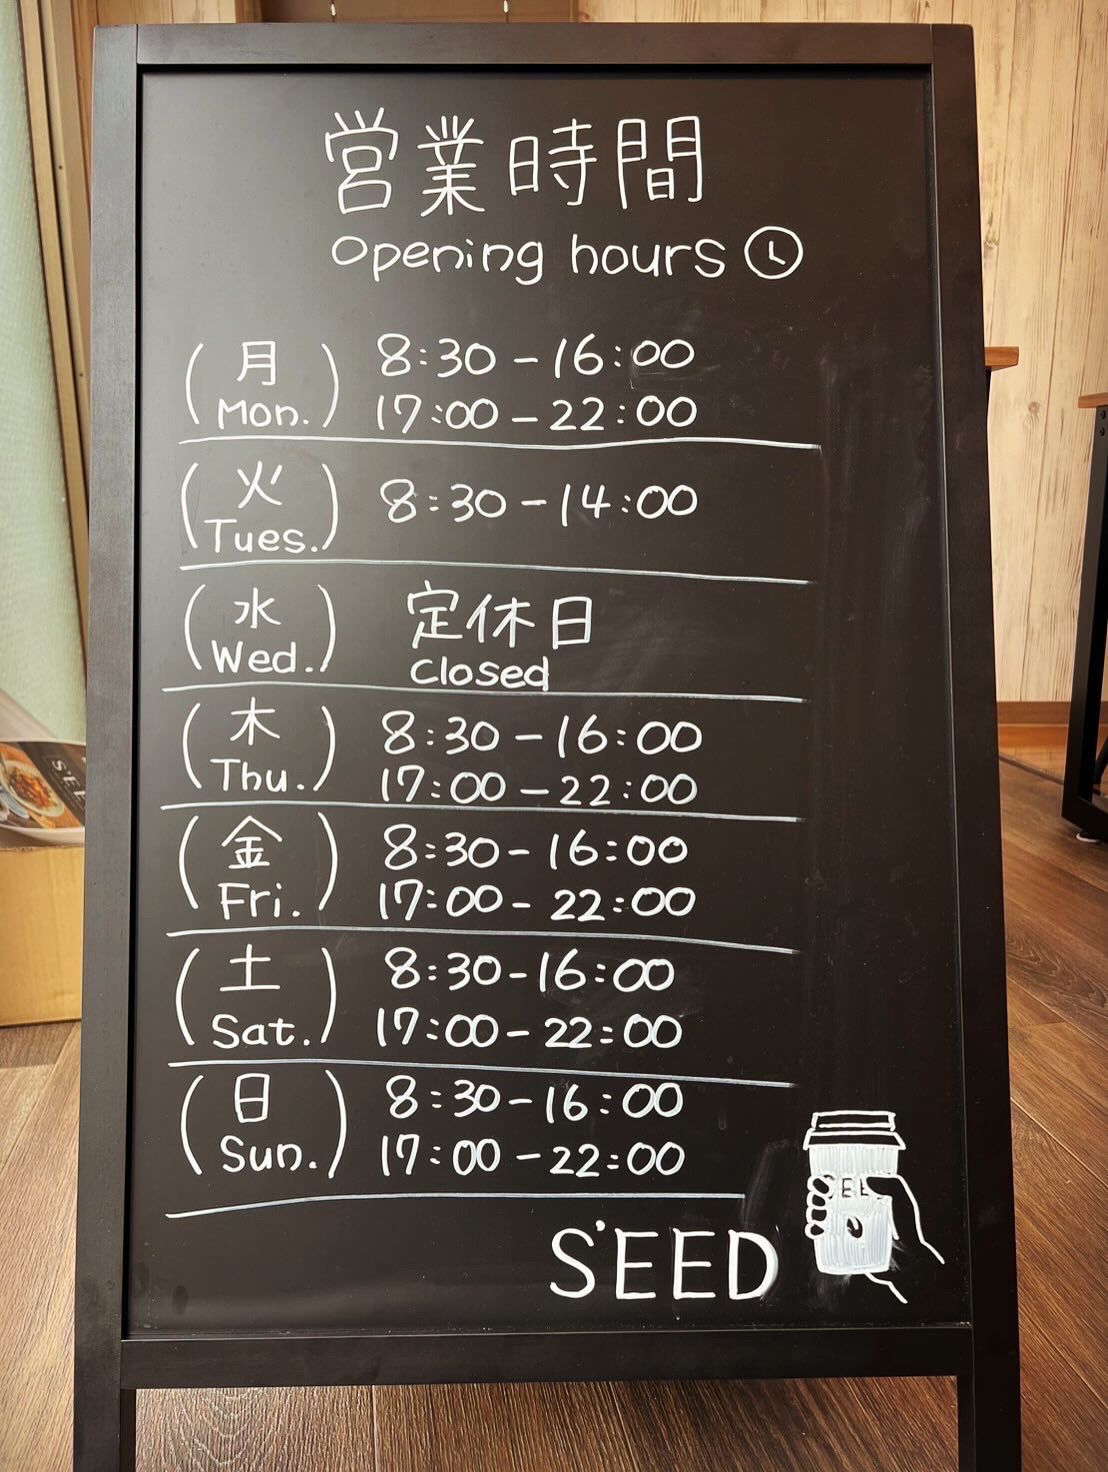 営業時間
opening hours
(月 Mon.) 8:30-16:00
17:00-22:00
(火 Tues.) 8:30-14:00
(水 Wed.) 定休日
Closed
(木 Thu.) 8:30-16:00
17:00-22:00
(金 Fri.) 8:30-16:00
17:00-22:00
(土 Sat.) 8:30-16:00
17:00-22:00
(日 Sun.) 8:30-16:00
17:00-22:00
S'EED